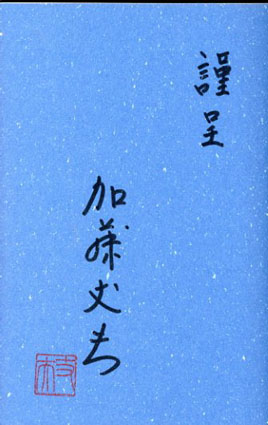 謹呈
加藤丈夫